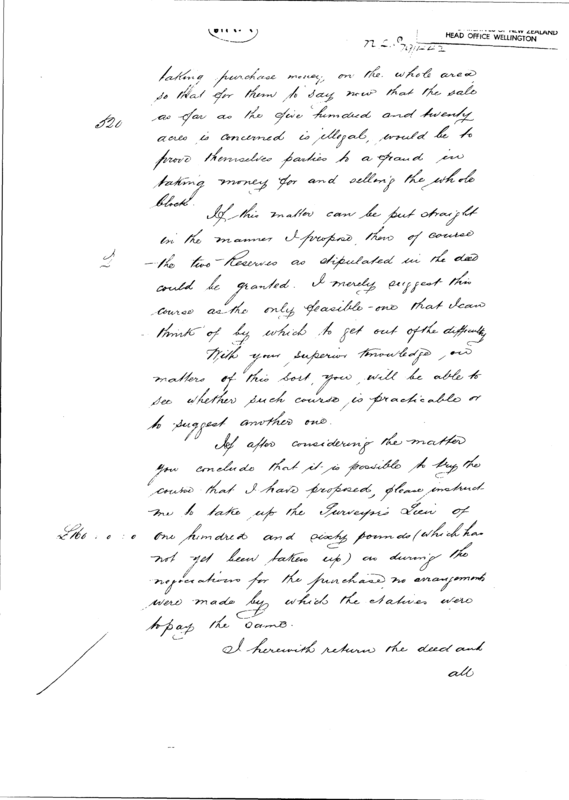 ARCHIVES OF NEW ZEALAND
HEAD OFFICE WELLINGTON
taking purchase money, on the whole area
so that for them to say now that the sale
520 as far as the five hundred and twenty
acres is concerned is illegal, would be to
prove themselves parties to a fraud in
taking money for and selling the whole
block.
If this matter can be put straight
in the manner I propose, then of course
2 the two Reserves as stipulated in the deed
could be granted. I merely suggest this
course as the only feasible one that I can
think of by which to get out of the difficulty
With your superior knowledge, on
matters of this sort, you will be able to
see whether such course is practicable or
to suggest another one.
If after considering the matter
you conclude that it is possible to try the
course that I have proposed, please instruct
me to take up the Surveyor's Lien of
£160.0.0 one hundred and sixty pounds (which has
not yet been taken up) as during the
negociations for the purchase no arrangements
were made by which the Natives were
to pay the same.
I herewith return the deed and
all